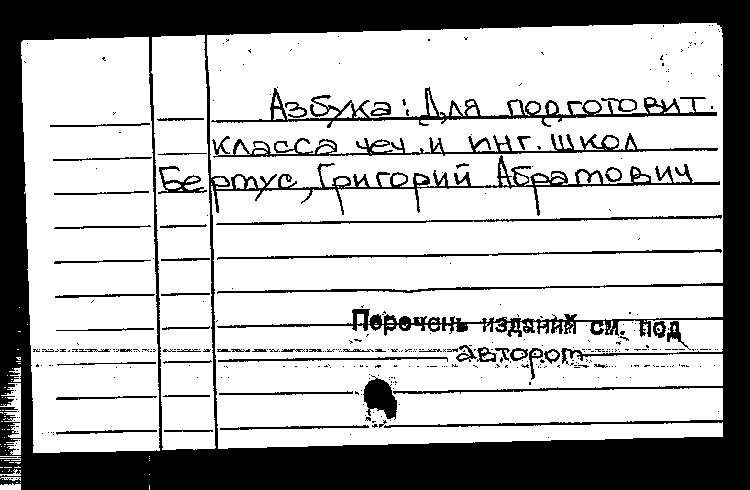 Азбука: Для подготовит.
класса чеч. и инг. школ
Бертус, Григорий Абрамович
Перечень изданий см. под
автором